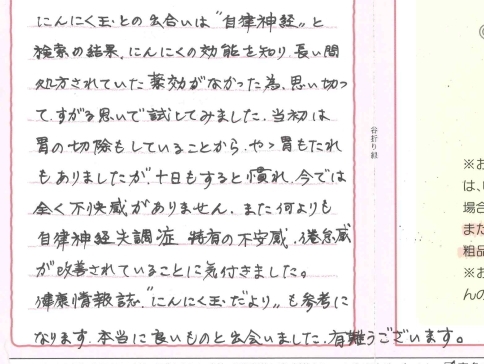 にんにく玉との出合いは"自律神経"と
検索の結果、にんにくの効能を知り、長い間
処方されていた薬効がなかった為、思い切っ
て、すがる思いで試してみました。当初は
胃の切除もしていることから、やゝ胃もたれ
もありましたが、十日もすると慣れ、今では
全く不快感がありません。また何よりも
自律神経失調症 特有の不安感、倦怠感
が改善されていることに気付きました。
健康情報誌、"にんにく玉・だより"も参考に
なります。本当に良いものと出会いました。有難うございます。
谷折り線
※お
は、
場合
また
粗品
※お
んの